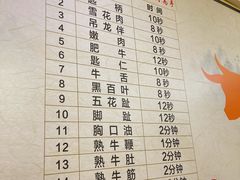 时间
2 匙柄 10秒
3 雪花肉 8秒
4 吊龙伴 8秒
5 嫩肉 8秒
6 肥牛 12秒
7 匙仁 10秒
8 牛舌 8秒
9 黑百叶 12秒
10 五花趾 12秒
11 脚趾 2分钟
12 胸口油 1分钟
13 熟牛鞭 2分钟
14 熟牛筋 2分钟